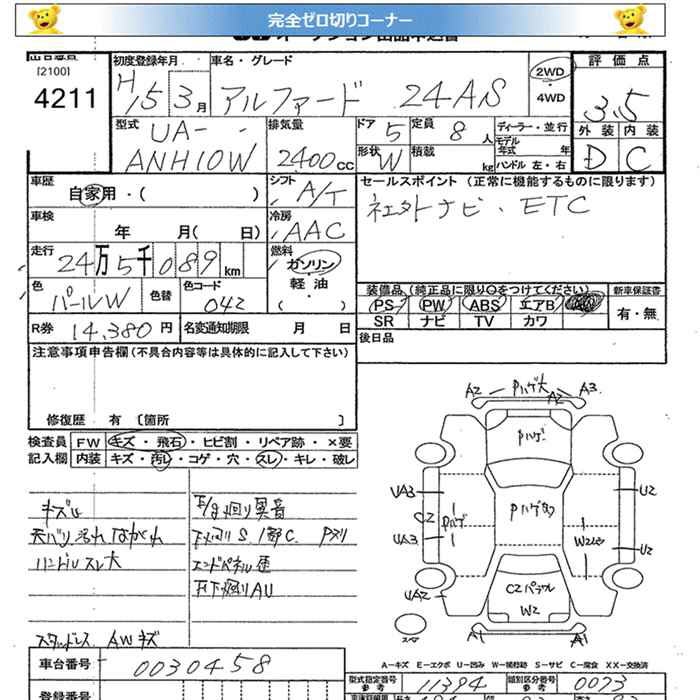 完全ゼロ切りコーナー
[2100]
4211
初度登録年月
H15 3月
車名・グレード
アルファード 24AS
2WD
4WD
評価点
3.5
外装 内装
D C
型式
UA-
ANH10W
排気量
2400cc
ドア 5
定員 8人
形状 W
積載 kg
ディーラー・並行
モデル年式 年
ハンドル 左・右
車歴
自家用・( )
シフト A/T
車検
年 月( 日)
冷房 AAC
走行
24万5千089km
燃料
ガソリン
軽油
・( )
色 パールW
色替
色コード 042
R券 14,380円
名変通知期限 月 日
セールスポイント (正常に機能するものに限ります)
社外ナビ・ETC
装備品(純正品に限り○をつけてください)
PS PW ABS エアB
SR ナビ TV カワ
新車保証書
有・無
後日品
注意事項申告欄(不具合内容等は具体的に記入して下さい)
修復歴 有 〔箇所 〕
検査員
記入欄
FW キズ・飛石・ヒビ割・リペア跡・×要
内装 キズ・汚レ・コゲ・穴・スレ・キレ・破レ
天バリ汚れ
ハンドルスレ大
スタッドレス AWキズ
下廻りS
A2 Pハゲ大 A2 A3
Pハゲ
UA3
CZ
Pハゲ
UA3
UA2
U2
U2
W2
A1 A1
A-キズ E-エクボ U-凹み W-補修跡 S-サビ C-腐食 XX-交換済
車台番号 0030458
登録番号
型式指定番号 参考 11394
類別区分番号 参考 0073